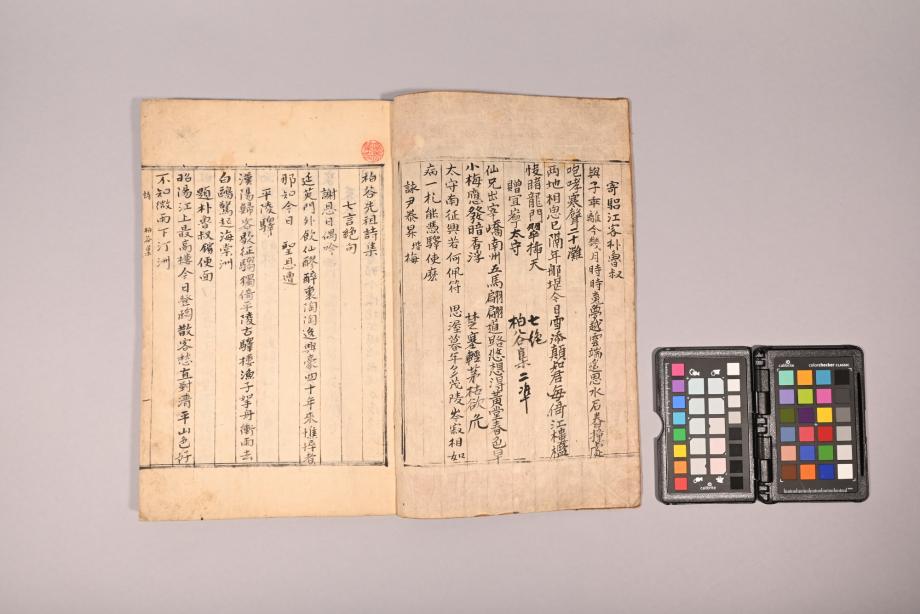 寄昭江客朴魯叔
與子乖離今幾月時時電夢越雲端遙思水石舂撞處
咆哮寒聲二十灘
兩地相思已隔年那堪今日雪添顛知君每倚江樓檻
梭暗龍門翠揷天
贈宜寧太守
仙兄出宰嶠南州五馬翩翩道路悠想得黃堂春色早
小梅應發暗香浮
太守南征興若何佩符
思渥暮年多茂陵岑寂相如
病一札能憑驛使麽
詠尹恭昇 楷梅
七絶
柏谷集二準
柏谷先祖詩集
七言絶句
謝恩日偶吟
延英門外飮仙醪醉裏陶陶逸興豪四十年來憔悴者
那知今日 聖恩遭
平陵驛
漢陽歸客駐征驂獨倚平陵古驛樓漁子挐舟衝雨去
白鷗驚起海棠洲
題朴魯叔 便面
昭陽江上最高樓今日登臨散客愁直對淸平山色好
不知微雨下汀洲
詩 柏谷集 一
calibrite
colorchecker CLASSIC
calibrite